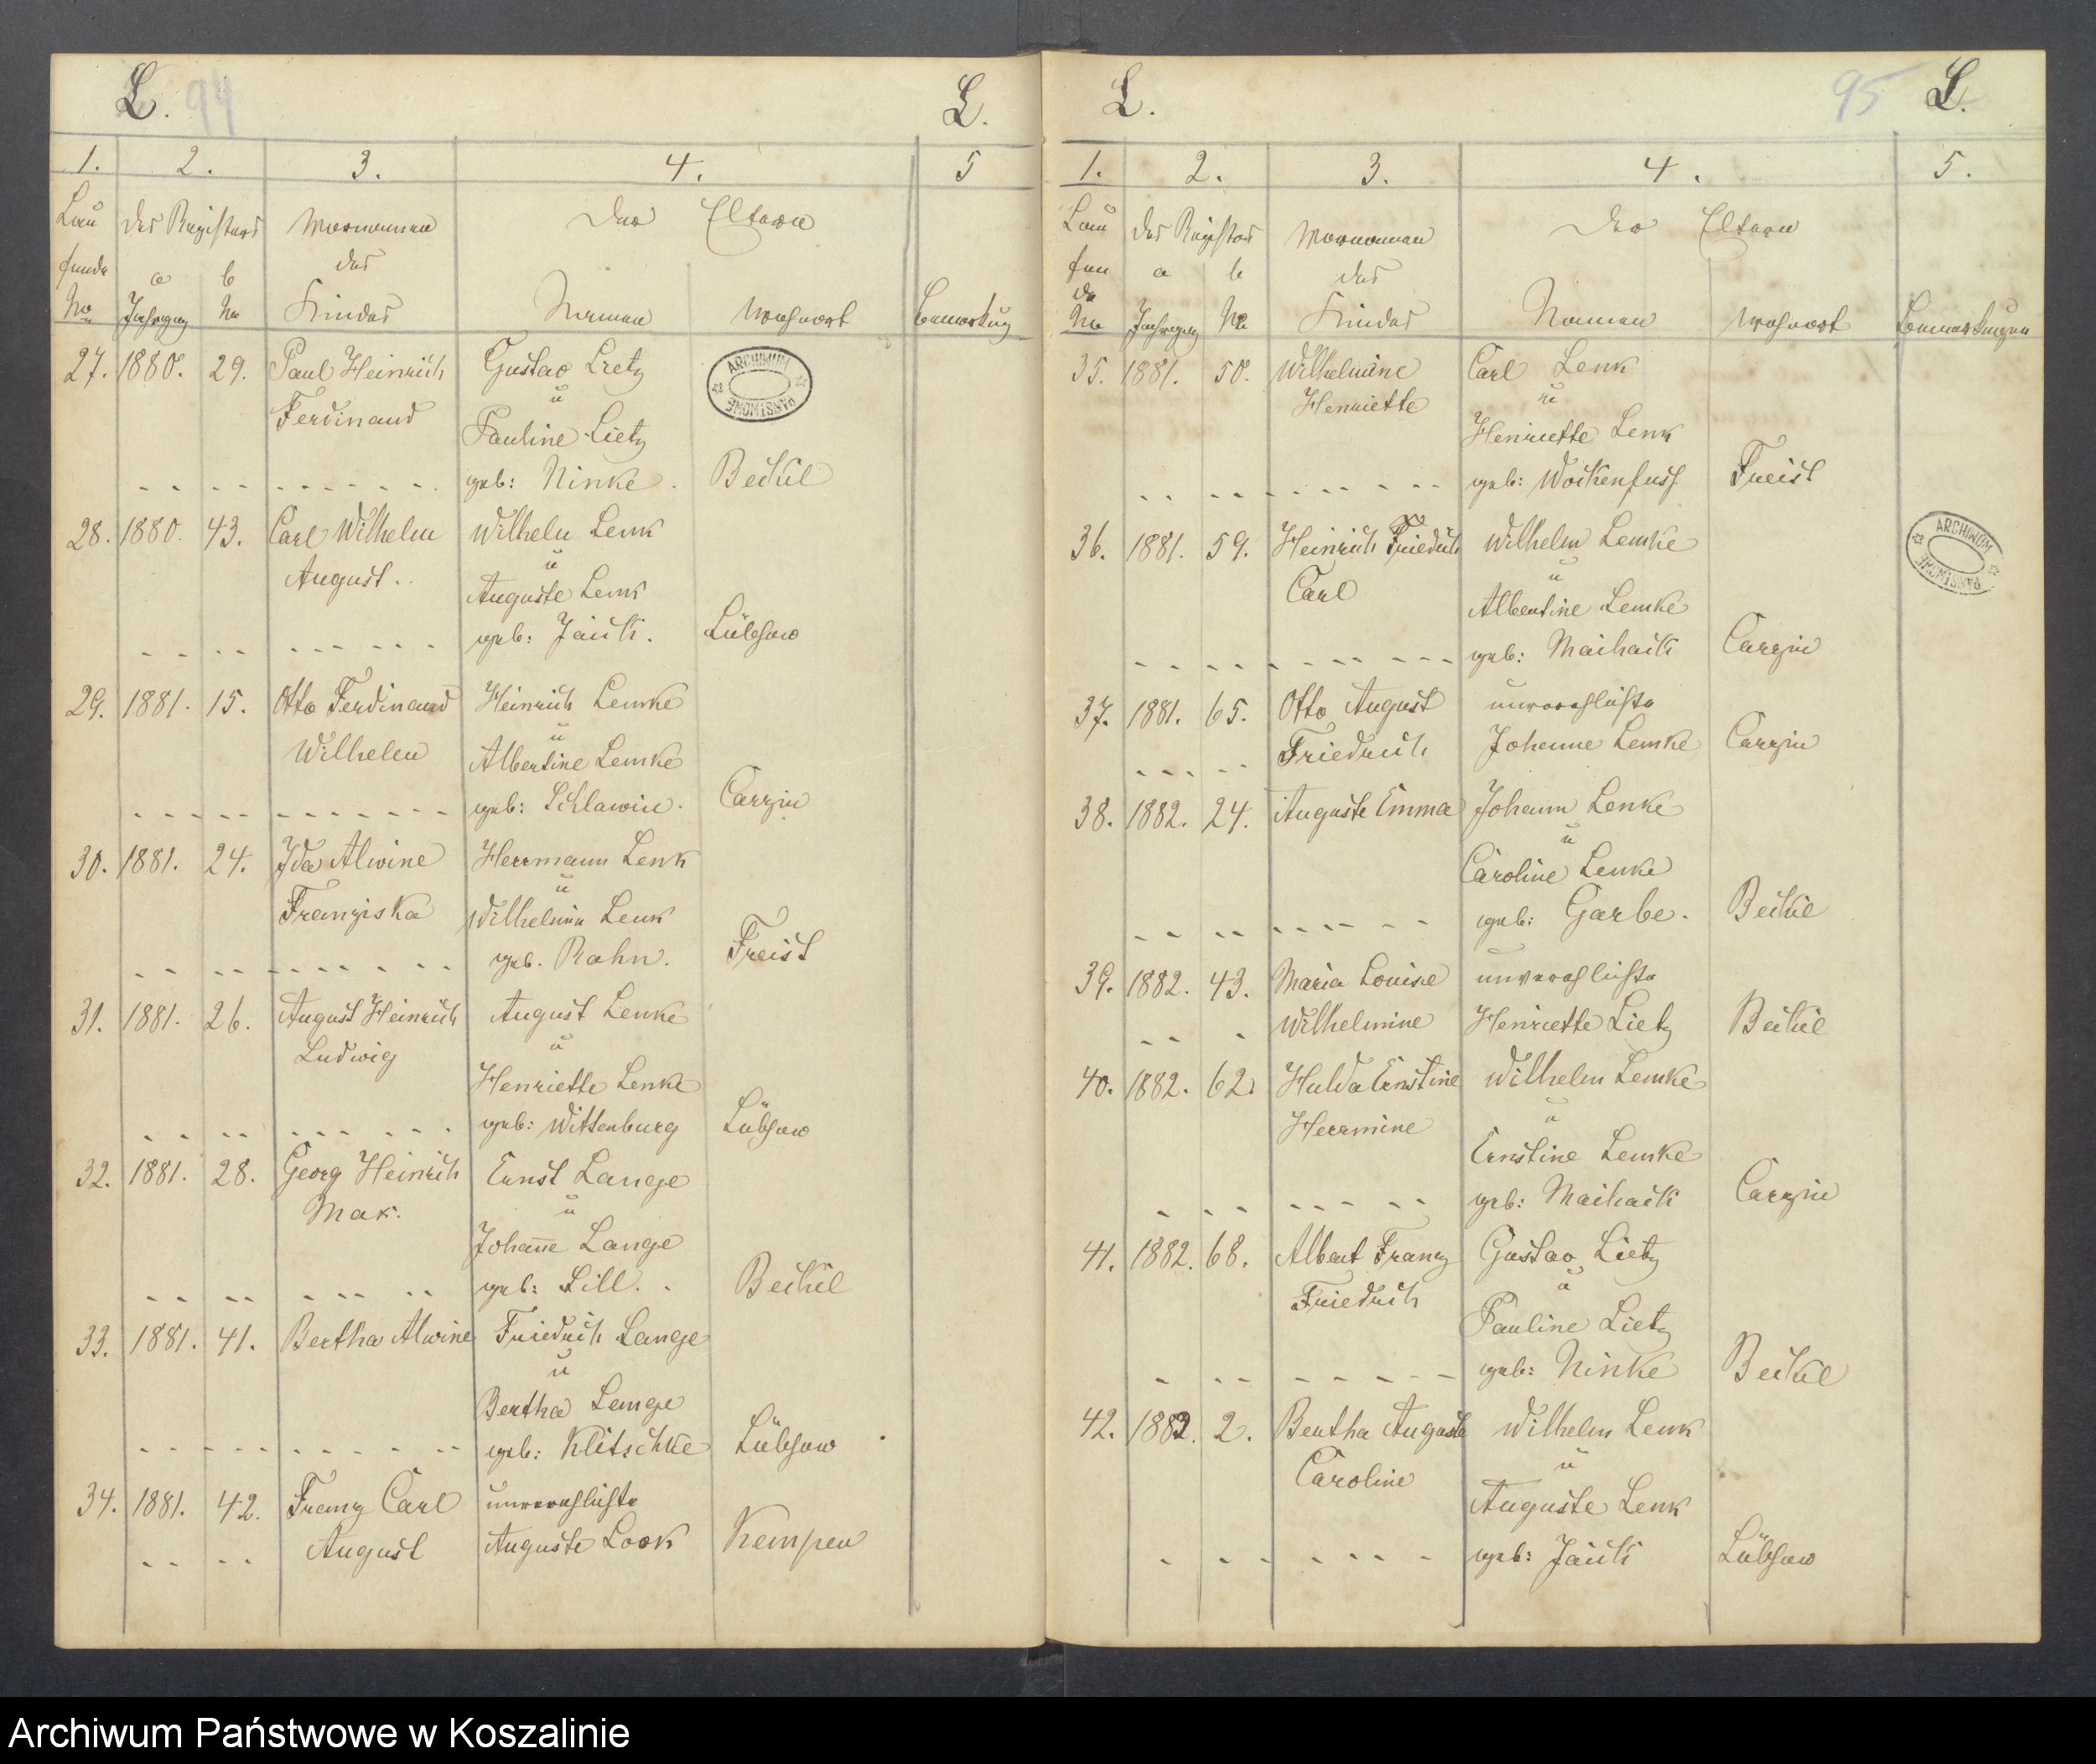 L. 94 L.
1. 2. 3. 4. 5
Lau des Registers Vornamen der Eltern
fende a b des
No Jahrgang No Kindes Namen Wohnort Bemerkung
27. 1880. 29. Paul Heinrich Gustav Lietz
u
Ferdinand Pauline Lietz
geb: Ninke. Beckel
28. 1880. 43. Carl Wilhelm Wilhelm Lenk
u
August. Auguste Lenk
geb: Jäück. Lübsow
29. 1881. 15. Otto Ferdinand Heinrich Lemke
u
Wilhelm Albertine Lemke
geb: Schlawin. Carzin
30. 1881. 24. Ida Alwine Herrmann Lenk
u
Franziska Wilhelmine Lenk
geb. Rahn. Freist
31. 1881. 26. August Heinrich August Lenke
u
Ludwig Henriette Lenke
geb: Wittenburg Lübsow
32. 1881. 28. Georg Heinrich Ernst Lange
u
Max. Johanne Lange
geb: Sill. Beckel
33. 1881. 41. Bertha Alwine Friedrich Lange
u
Bertha Lange
geb: Klitschke Lübsow
34. 1881. 42. Franz Carl unverehlichte
August Auguste Look Kempen
L. 95 L.
1. 2. 3. 4. 5.
Lau des Registers Vornamen der Eltern
fen a b des
de
No Jahrgang No Kindes Namen Wohnort Bemerkungen
35. 1881. 50. Wilhelmine Carl Lenk
u
Henriette Henriette Lenk
geb: Wockenfuss Freist
36. 1881. 59. Heinrich Friedrich Wilhelm Lemke
u
Carl Albertine Lemke
geb: Maihack Carzin
37. 1881. 65. Otto August unverehlichte
Friedrich Johanne Lemke Carzin
38. 1882. 24. Auguste Emma Johann Lenke
u
Caroline Lenke
geb: Garbe. Beckel
39. 1882. 43. Maria Louise unverehlichte
Wilhelmine Henriette Lietz Beckel
40. 1882. 62. Hulda Ernstine Wilhelm Lemke
u
Herrmine Ernstine Lemke
geb: Maihack Carzin
41. 1882. 68. Albert Franz Gustav Lietz
u
Friedrich Pauline Lietz
geb: Ninke Beckel
42. 1883. 2. Bertha Auguste Wilhelm Lenk
u
Caroline Auguste Lenk
geb: Jäück Lübsow
ARCHIWUM PAŃSTWOWE
ARCHIWUM PAŃSTWOWE
Archiwum Państwowe w Koszalinie